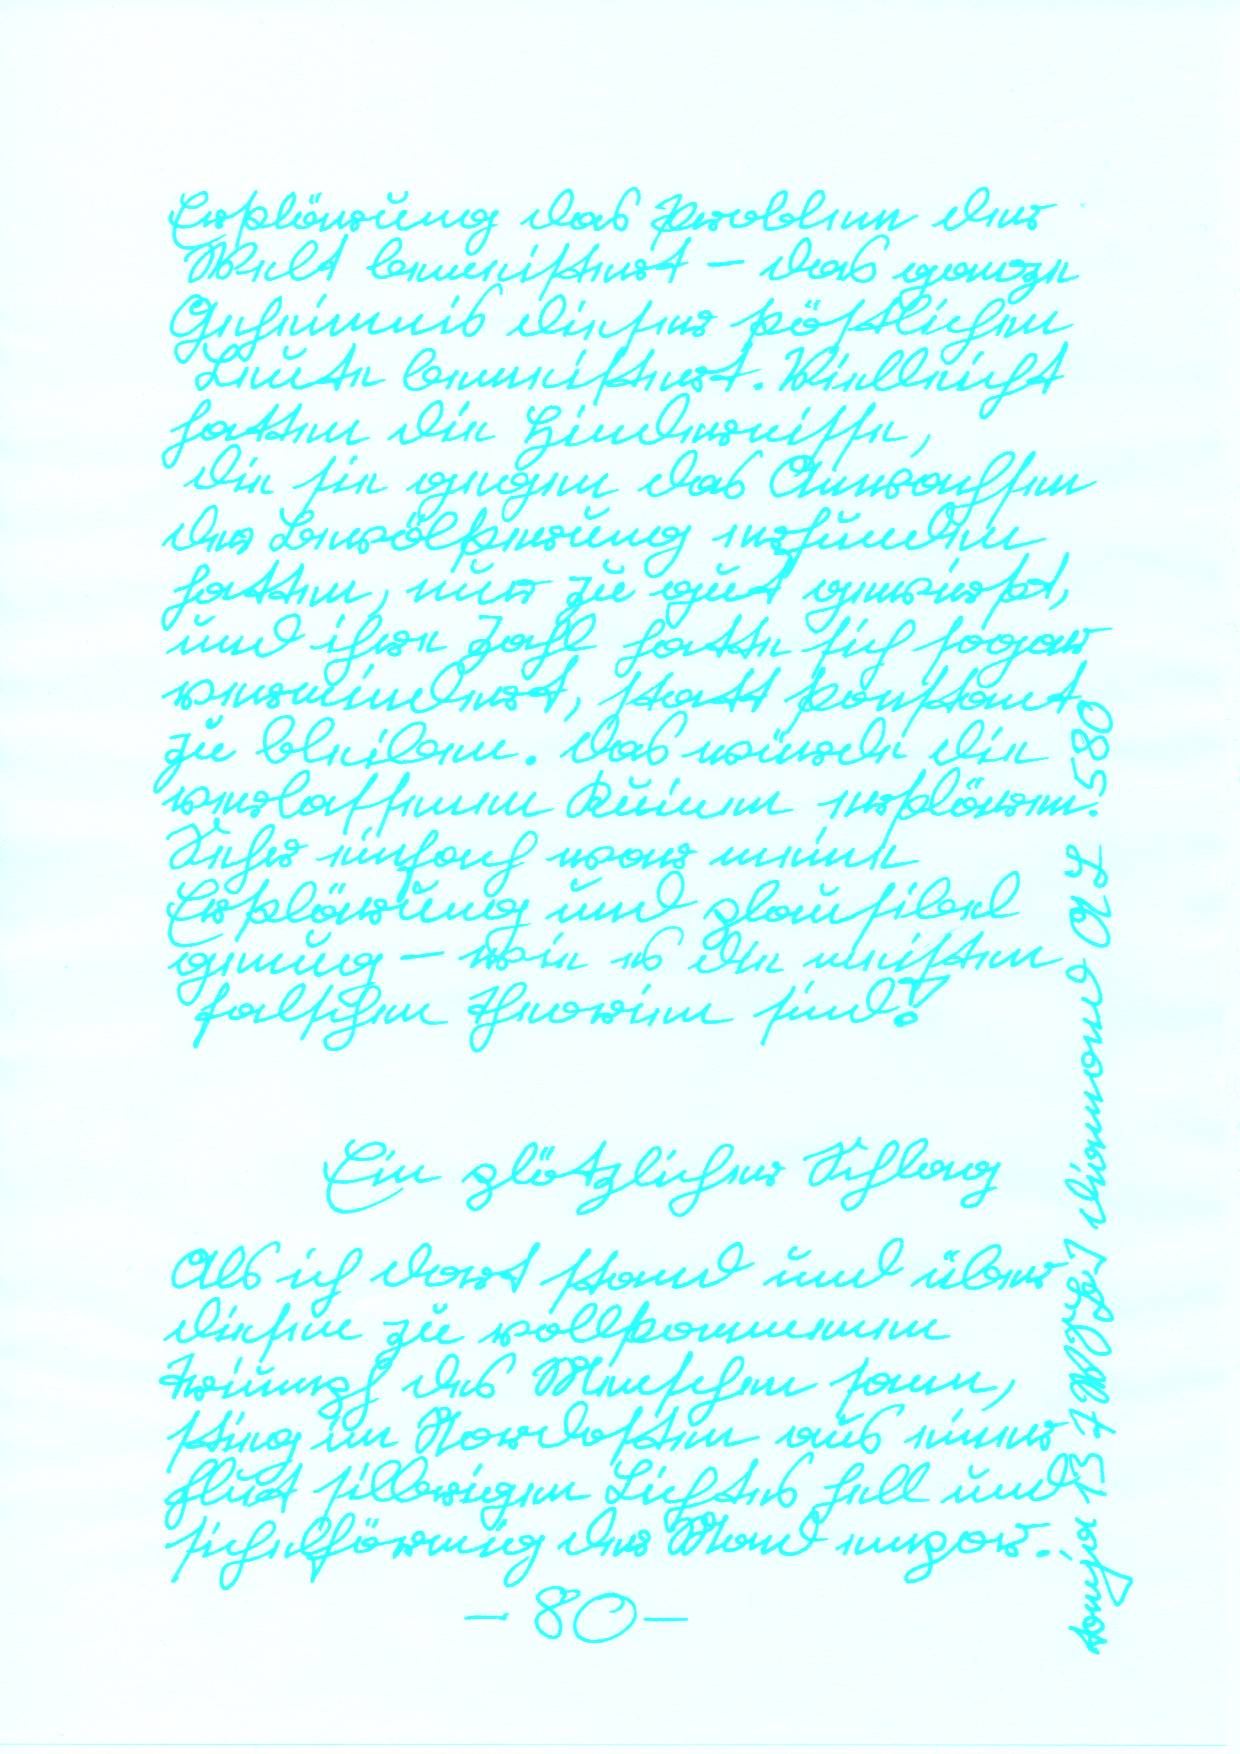 Erklärung das Problem der
Welt bemeistert – das ganze
Geheimnis dieser köstlichen
Leute bemeistert. Vielleicht
hatten die Hindernisse,
die sie gegen das Anwachsen
der Bevölkerung erfunden
hatten, nur zu gut gewirkt,
und ihre Zahl hatte sich sogar
vermindert, statt konstant
zu bleiben. Das würde die
verlassenen Ruinen erklären.
Sehr einfach war meine
Erklärung und plausibel
genug – wie es die meisten
falschen Theorien sind!
Ein plötzlicher Schlag
Als ich dort stand und über
diesen zu vollkommenen
Triumph des Menschen sann,
stieg im Nordosten aus einer
Flut silbrigen Lichtes hell und
sichelförmig der Mond empor.
– 80 –
diamond 580